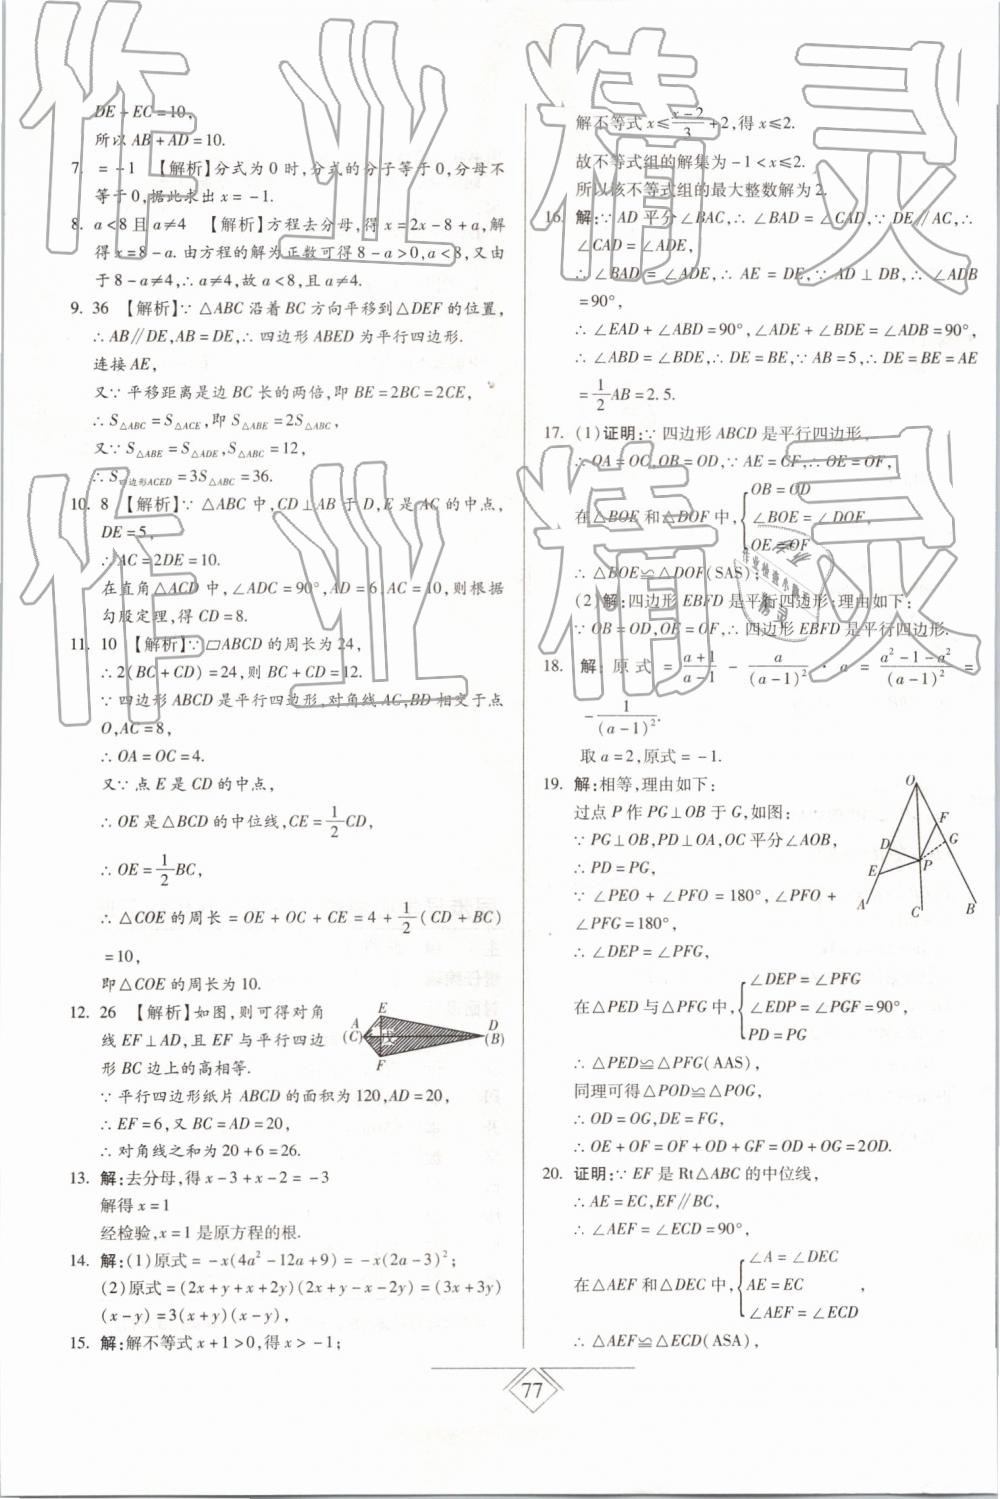 DE+EC=10,
所以AB+AD=10.
7. =-1 【解析】分式为0时,分式的分子等于0,分母不
等于0,据此求出x=-1.
8. a<8且a≠4 【解析】方程去分母,得x=2x-8+a,解
得x=8-a.由方程的解为正数可得8-a>0,a<8,又由
于8-a≠4,∴a≠4,故a<8,且a≠4.
9. 36 【解析】∵△ABC沿着BC方向平移到△DEF的位置,
∴AB∥DE,AB=DE,∴四边形ABED为平行四边形.
连接AE,
又∵平移距离是边BC长的两倍,即BE=2BC=2CE,
∴S△ABC=S△ACE,即S△ABE=2S△ABC,
又∵S△ABE=S△ADE,S△ABC=12,
∴S四边形ACED=3S△ABC=36.
10. 8 【解析】∵△ABC中,CD⊥AB于D,E是AC的中点,
DE=5,
∴AC=2DE=10.
在直角△ACD中,∠ADC=90°,AD=6,AC=10,则根据
勾股定理,得CD=8.
11. 10 【解析】∵▱ABCD的周长为24,
∴2(BC+CD)=24,则BC+CD=12.
∵四边形ABCD是平行四边形,对角线AC,BD相交于点
O,AC=8,
∴OA=OC=4.
又∵点E是CD的中点,
∴OE是△BCD的中位线,CE=1/2CD,
∴OE=1/2BC,
∴△COE的周长=OE+OC+CE=4+1/2(CD+BC)
=10,
即△COE的周长为10.
12. 26 【解析】如图,则可得对角
线EF⊥AD,且EF与平行四边
形BC边上的高相等.
E
A
(C)
D
(B)
F
∵平行四边形纸片ABCD的面积为120,AD=20,
∴EF=6,又BC=AD=20,
∴对角线之和为20+6=26.
13. 解:去分母,得x-3+x-2=-3
解得x=1
经检验,x=1是原方程的根.
14. 解:(1)原式=-x(4a²-12a+9)=-x(2a-3)²;
(2)原式=(2x+y+x+2y)(2x+y-x-2y)=(3x+3y)
(x-y)=3(x+y)(x-y),
15. 解:解不等式x+1>0,得x>-1;
解不等式x≤(x-2)/3+2,得x≤2.
故不等式组的解集为-1<x≤2.
所以该不等式组的最大整数解为2.
16. 解:∵AD平分∠BAC,∴∠BAD=∠CAD,∵DE∥AC,∴
∠CAD=∠ADE,
∴∠BAD=∠ADE,∴AE=DE,∵AD⊥DB,∴∠ADB
=90°,
∴∠EAD+∠ABD=90°,∠ADE+∠BDE=∠ADB=90°,
∴∠ABD=∠BDE,∴DE=BE,∵AB=5,∴DE=BE=AE
=1/2AB=2.5.
17. (1)证明:∵四边形ABCD是平行四边形,
∴OA=OC,OB=OD,∵AE=CF,∴OE=OF,
OB=OD
在△BOE和△DOF中,∠BOE=∠DOF,
OE=OF
∴△BOE≌△DOF(SAS);
(2)解:四边形EBFD是平行四边形;理由如下:
∵OB=OD,OE=OF,∴四边形EBFD是平行四边形.
18. 解:原式=(a+1)/(a-1)-a/(a-1)²·a=(a²-1-a²)/(a-1)²=
-1/(a-1)².
取a=2,原式=-1.
19. 解:相等,理由如下:
过点P作PG⊥OB于G,如图:
∵PG⊥OB,PD⊥OA,OC平分∠AOB,
∴PD=PG,
∵∠PEO+∠PFO=180°,∠PFO+
∠PFG=180°,
∴∠DEP=∠PFG,
O
F
D
G
E
P
A
C
B
∠DEP=∠PFG
在△PED与△PFG中,∠EDP=∠PGF=90°,
PD=PG
∴△PED≌△PFG(AAS),
同理可得△POD≌△POG,
∴OD=OG,DE=FG,
∴OE+OF=OF+OD+GF=OD+OG=2OD.
20. 证明:∵EF是Rt△ABC的中位线,
∴AE=EC,EF∥BC,
∴∠AEF=∠ECD=90°,
∠A=∠DEC
在△AEF和△DEC中,AE=EC,
∠AEF=∠ECD
∴△AEF≌△ECD(ASA),
77
作业精灵
作业精灵